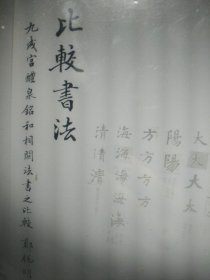 大大大大
陽陽
方方方方
海海海海海
清清清
比較書法
九成宮醴泉銘和相關法書之比較